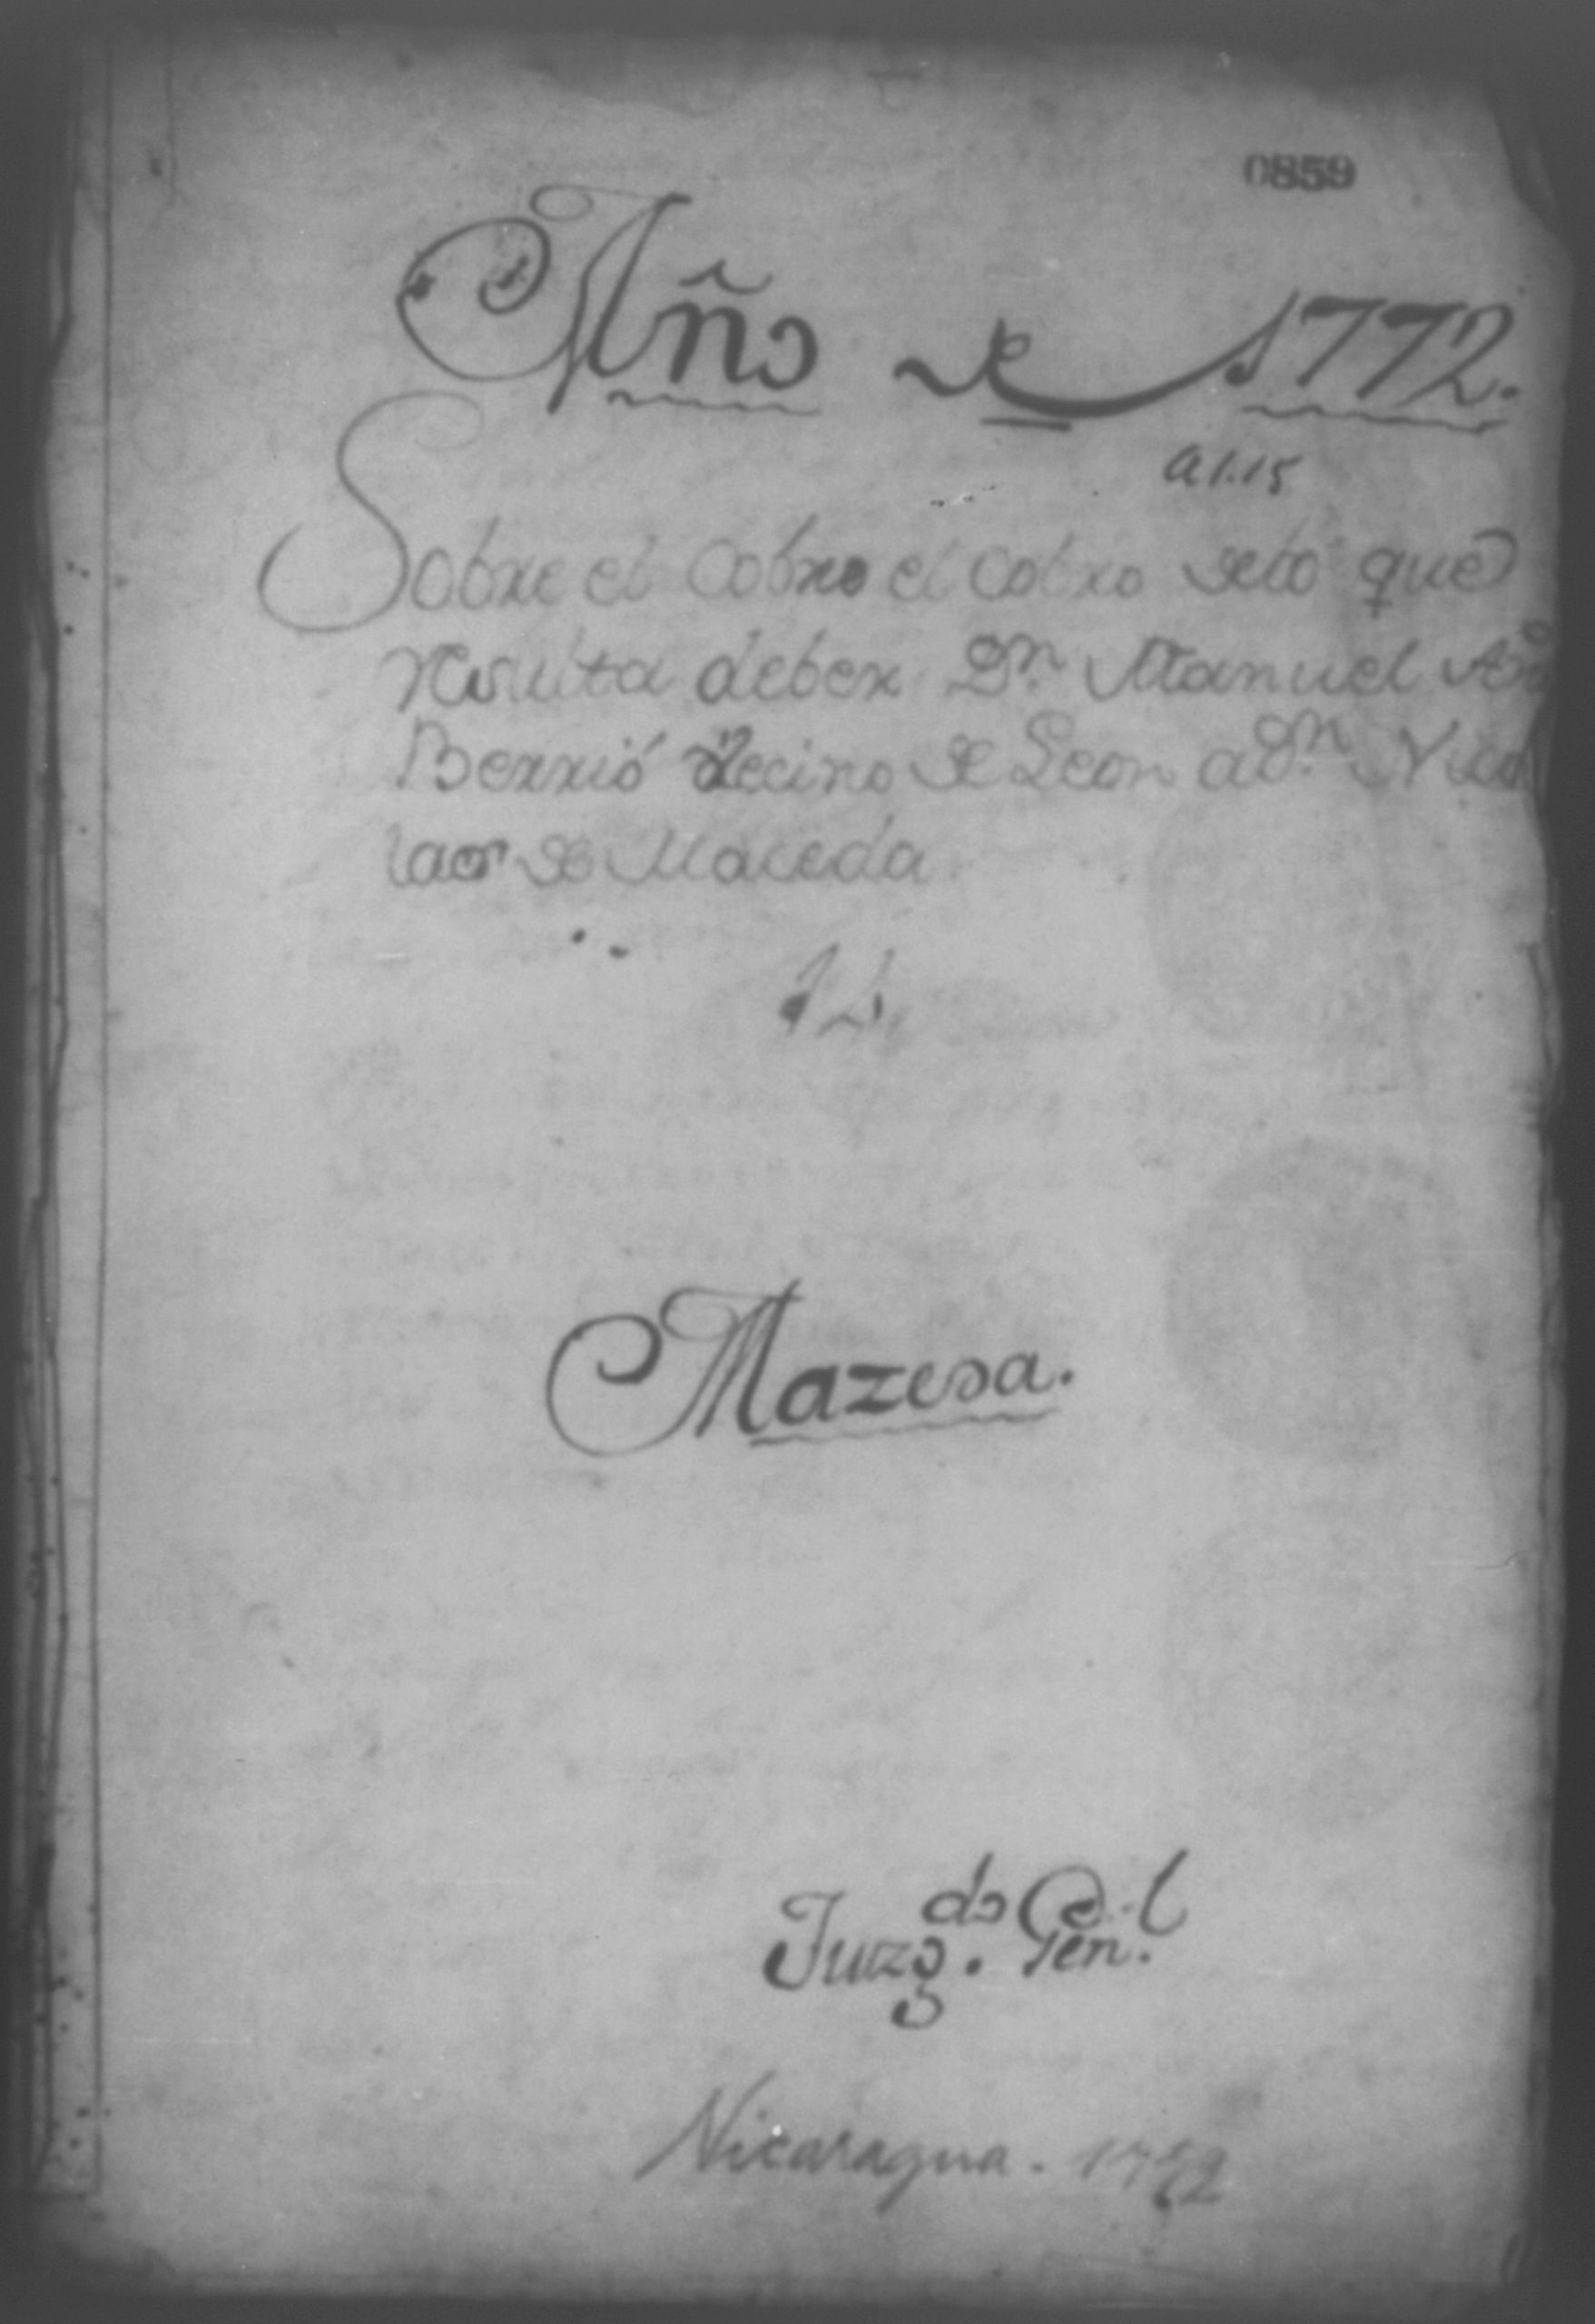 0859
Año de 1772.
A1.15
Sobre el Cobro el cobro de lo que
resulta deber Dn. Manuel
Berrió vecino de Leon a Dn. Nico
laos de Maceda
Mazeda.
Juzgdo. Genl.
Nicaragua. 1772